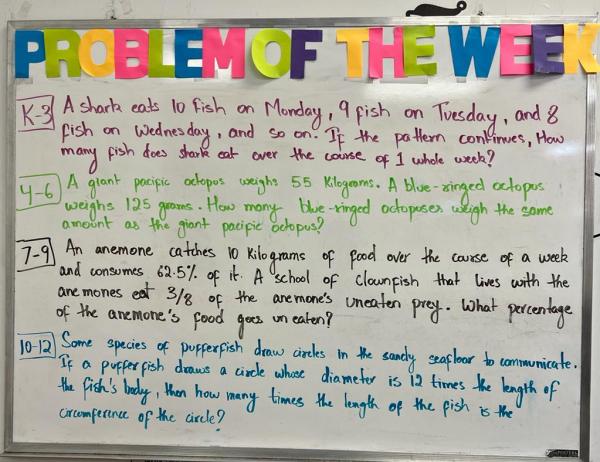 PROBLEM OF THE WEEK
K-3 A shark eats 10 fish on Monday, 9 fish on Tuesday, and 8
fish on Wednesday, and so on. If the pattern continues, How
many fish does shark eat over the course of 1 whole week?
4-6 A giant pacific octopus weighs 55 Kilograms. A blue-ringed octopus
weighs 125 grams. How many blue-ringed octopuses weigh the same
amount as the giant pacific octopus?
7-9 An anemone catches 10 Kilograms of food over the course of a week
and consumes 62.5% of it. A school of clownfish that lives with the
anemones eat 3/8 of the anemone's uneaten prey. What percentage
of the anemone's food goes uneaten?
10-12 Some species of pufferfish draw circles in the sandy seafloor to communicate.
If a pufferfish draws a circle whose diameter is 12 times the length of
the fish's body, then how many times the length of the fish is the
circumference of the circle?